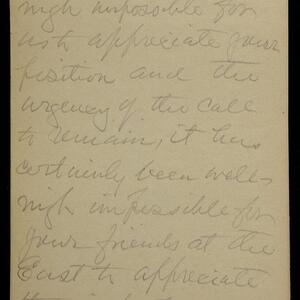 nigh impossible for
us to appreciate your
position and the
urgency of the call
to remain, it has
certainly been well-
nigh impossible for
your friends at the
East to appreciate